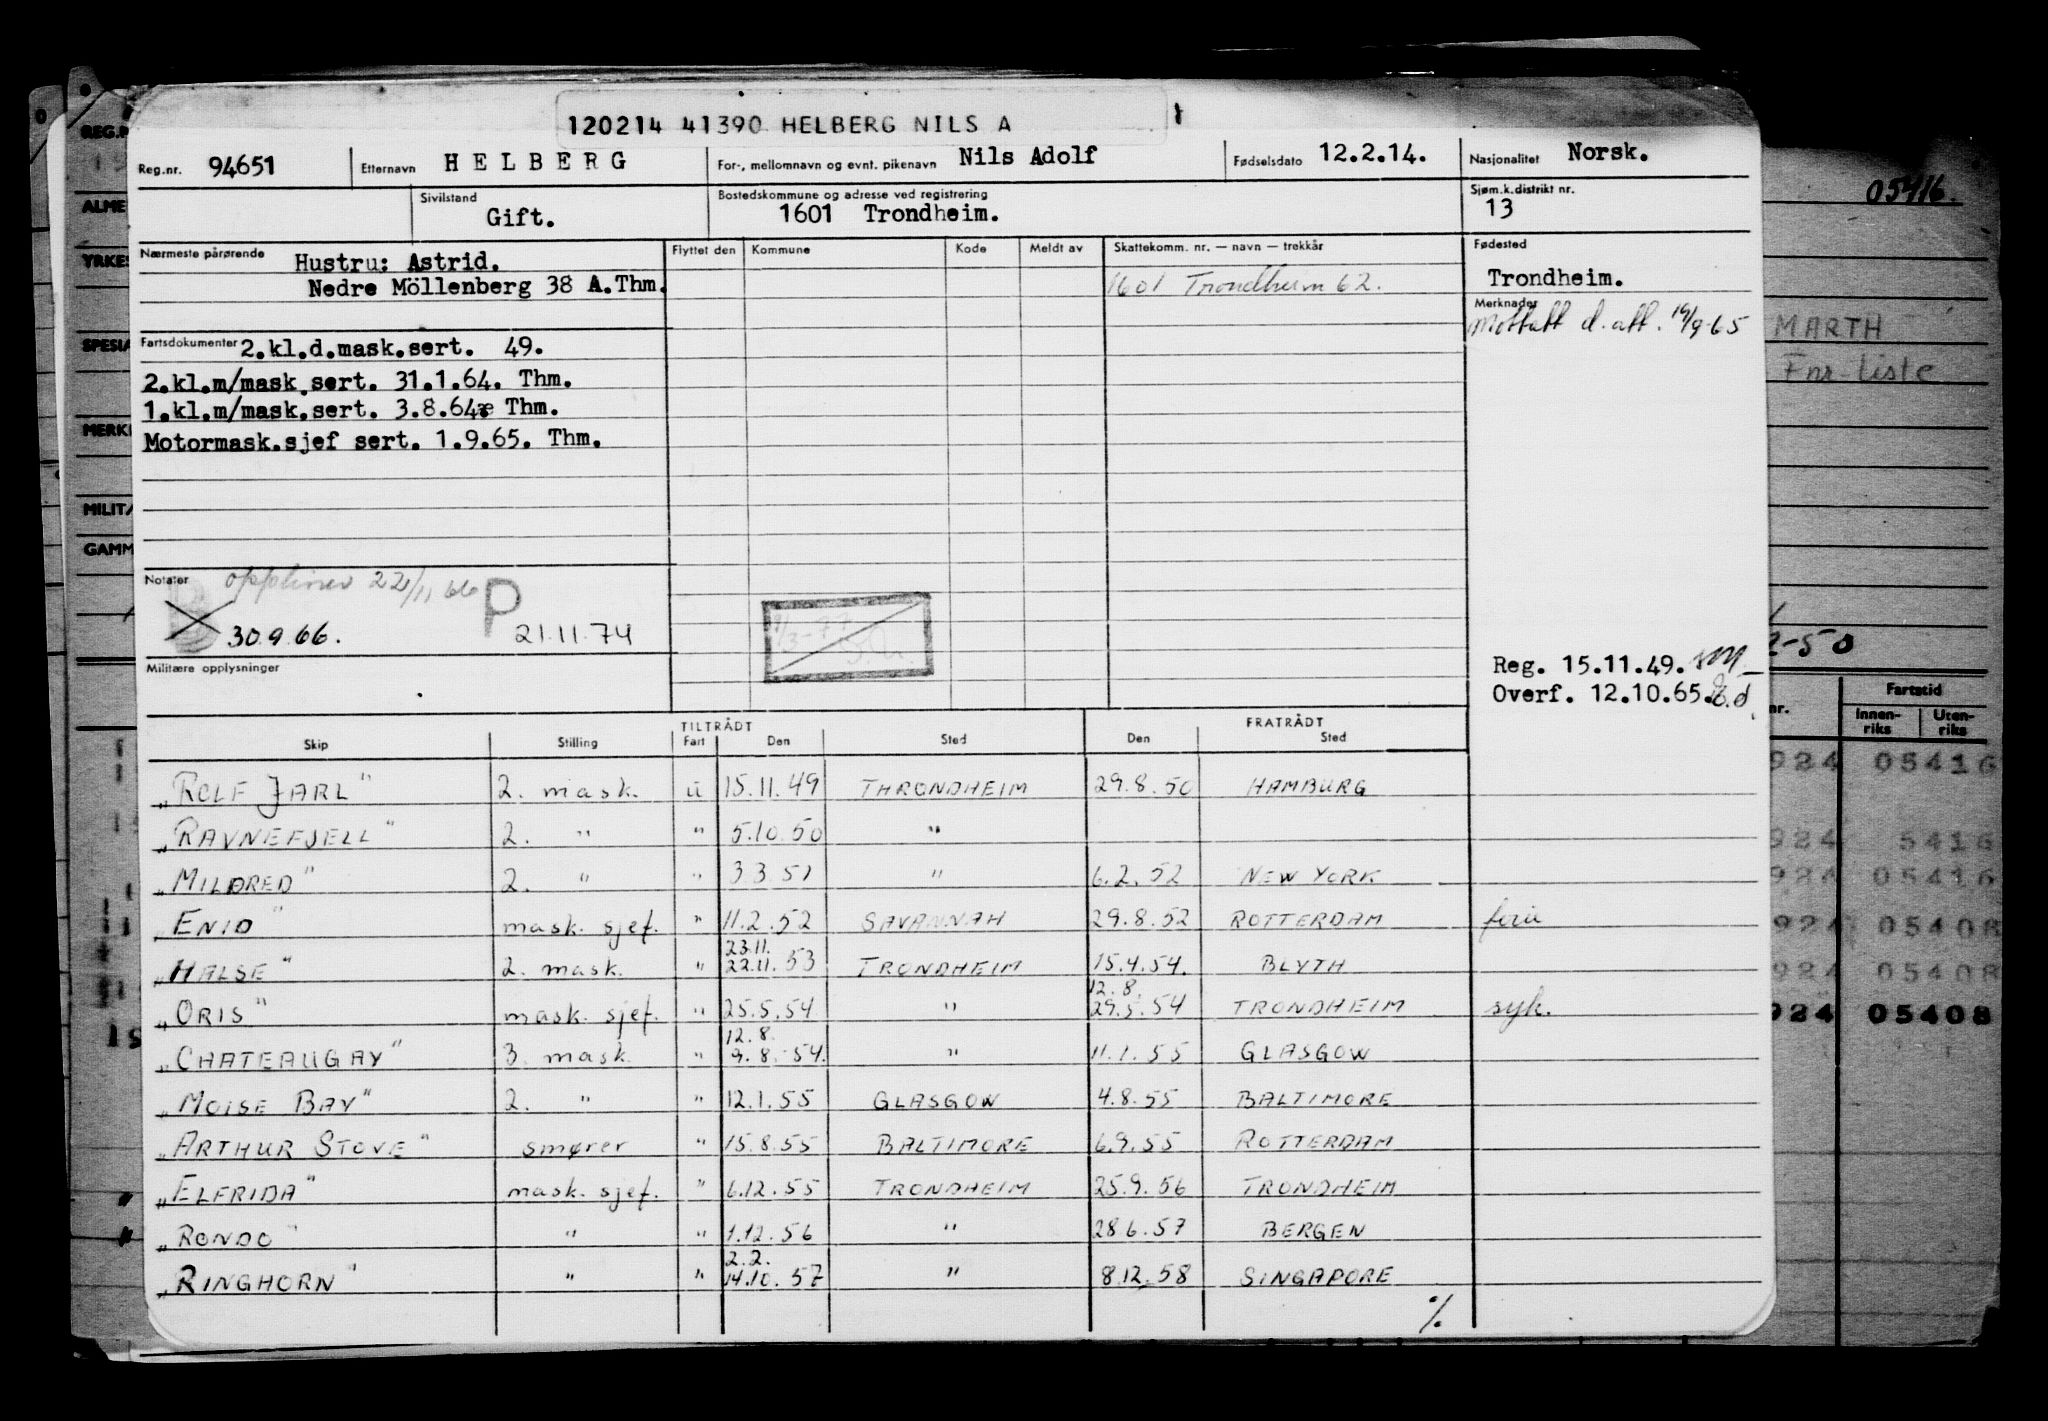 120214 41390 HELBERG NILS A
Reg.nr. 94651 Etternavn HELBERG For-, mellomnavn og evnt. pikenavn Nils Adolf Fødselsdato 12.2.14. Nasjonalitet Norsk.
Sivilstand Gift. Bostedskommune og adresse ved registrering 1601 Trondheim. Sjøm.k.distrikt nr. 13
Nærmeste pårørende Hustru: Astrid. Flyttet den Kommune Kode Meldt av Skattekomm. nr. — navn — trekkår Fødested
Nedre Möllenberg 38 A.Thm. 1601 Trondheim 62. Trondheim.
Merknader
Mottatt d. att. /9-65
Fartsdokumenter 2.kl.d.mask.sert. 49.
2.kl.m/mask.sert. 31.1.64. Thm.
1.kl.m/mask.sert. 3.8.64 Thm.
Motormask.sjef sert. 1.9.65. Thm.
Notater 22/11 66 P
30.9.66. 21.11.74
Militære opplysninger
Reg. 15.11.49.
Overf. 12.10.65.
TILTRÅDT FRATRÅDT
Skip Stilling Fart Den Sted Den Sted
"ROLF JARL" 2. mask. u 15.11.49 THRONDHEIM 29.8.50 HAMBURG
"RAVNEFJELL" 2. " " 5.10.50 "
"MILDRED" 2. " " 3.3.51 " 6.2.52 NEW YORK
"ENID" mask. sjef. " 11.2.52 SAVANNAH 29.8.52 ROTTERDAM ferie
23.11.
"HALSE" 2. mask. " 22.11.53 TRONDHEIM 15.4.54. BLYTH
12.8.
"ORIS" mask. sjef. " 25.5.54 " 29.5.54 TRONDHEIM syk.
12.8.
"CHATEAUGAY" 3. mask. " 9.8.54. " 11.1.55 GLASGOW
"MOISE BAY" 2. " " 12.1.55 GLASGOW 4.8.55 BALTIMORE
"ARTHUR STOVE" smører " 15.8.55 BALTIMORE 6.9.55 ROTTERDAM
"ELFRIDA" mask. sjef. " 6.12.55 TRONDHEIM 25.9.56 TRONDHEIM
"RONDO" " " 1.12.56 " 28.6.57 BERGEN
2.2.
"RINGHORN" " " 14.10.57 " 8.12.58 SINGAPORE
%
REG.
ALME
YRKES
SPESIA
MERK
MILIT
GAMM
05416.
MARTH
Fnr-liste
2-50
Fartstid
nr. Innen-riks Uten-riks
924 05416
924 5416
924 05416
924 05408
924 05408
924 05408